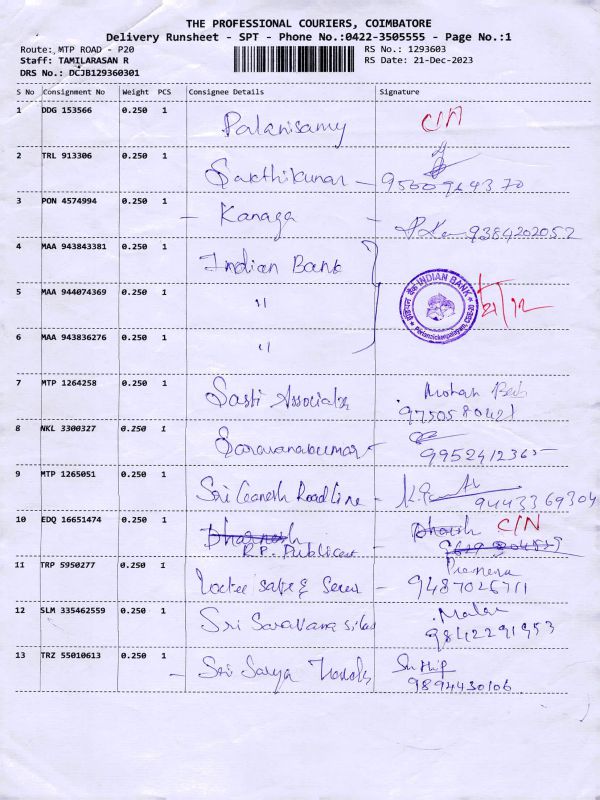 THE PROFESSIONAL COURIERS, COIMBATORE
Delivery Runsheet - SPT - Phone No.:0422-3505555 - Page No.:1
Route: MTP ROAD - P20 RS No.: 1293603
Staff: TAMILARASAN R RS Date: 21-Dec-2023
DRS No.: DCJB129360301
S No Consignment No Weight PCS Consignee Details Signature
1 DDG 153566 0.250 1 Palanisamy
2 TRL 913306 0.250 1 Sakthikumar -
3 PON 4574994 0.250 1 - Kanaga - 9384202052
4 MAA 943843381 0.250 1 Indian Bank
5 MAA 944074369 0.250 1 "
INDIAN BANK
21/12
6 MAA 943836276 0.250 1 "
7 MTP 1264258 0.250 1 Sasti Associates Mohan
9750580421
8 NKL 3300327 0.250 1 Saravanakumar -
9952412365
9 MTP 1265051 0.250 1 Sri Ganesh Roadline -
9443369304
10 EDQ 16651474 0.250 1 C/N
R.P. -
11 TRP 5950277 0.250 1
9487026711
12 SLM 335462559 0.250 1 Sri Saravana Malar
9842291953
13 TRZ 55010613 0.250 1 - Sri Sarya
9894430106